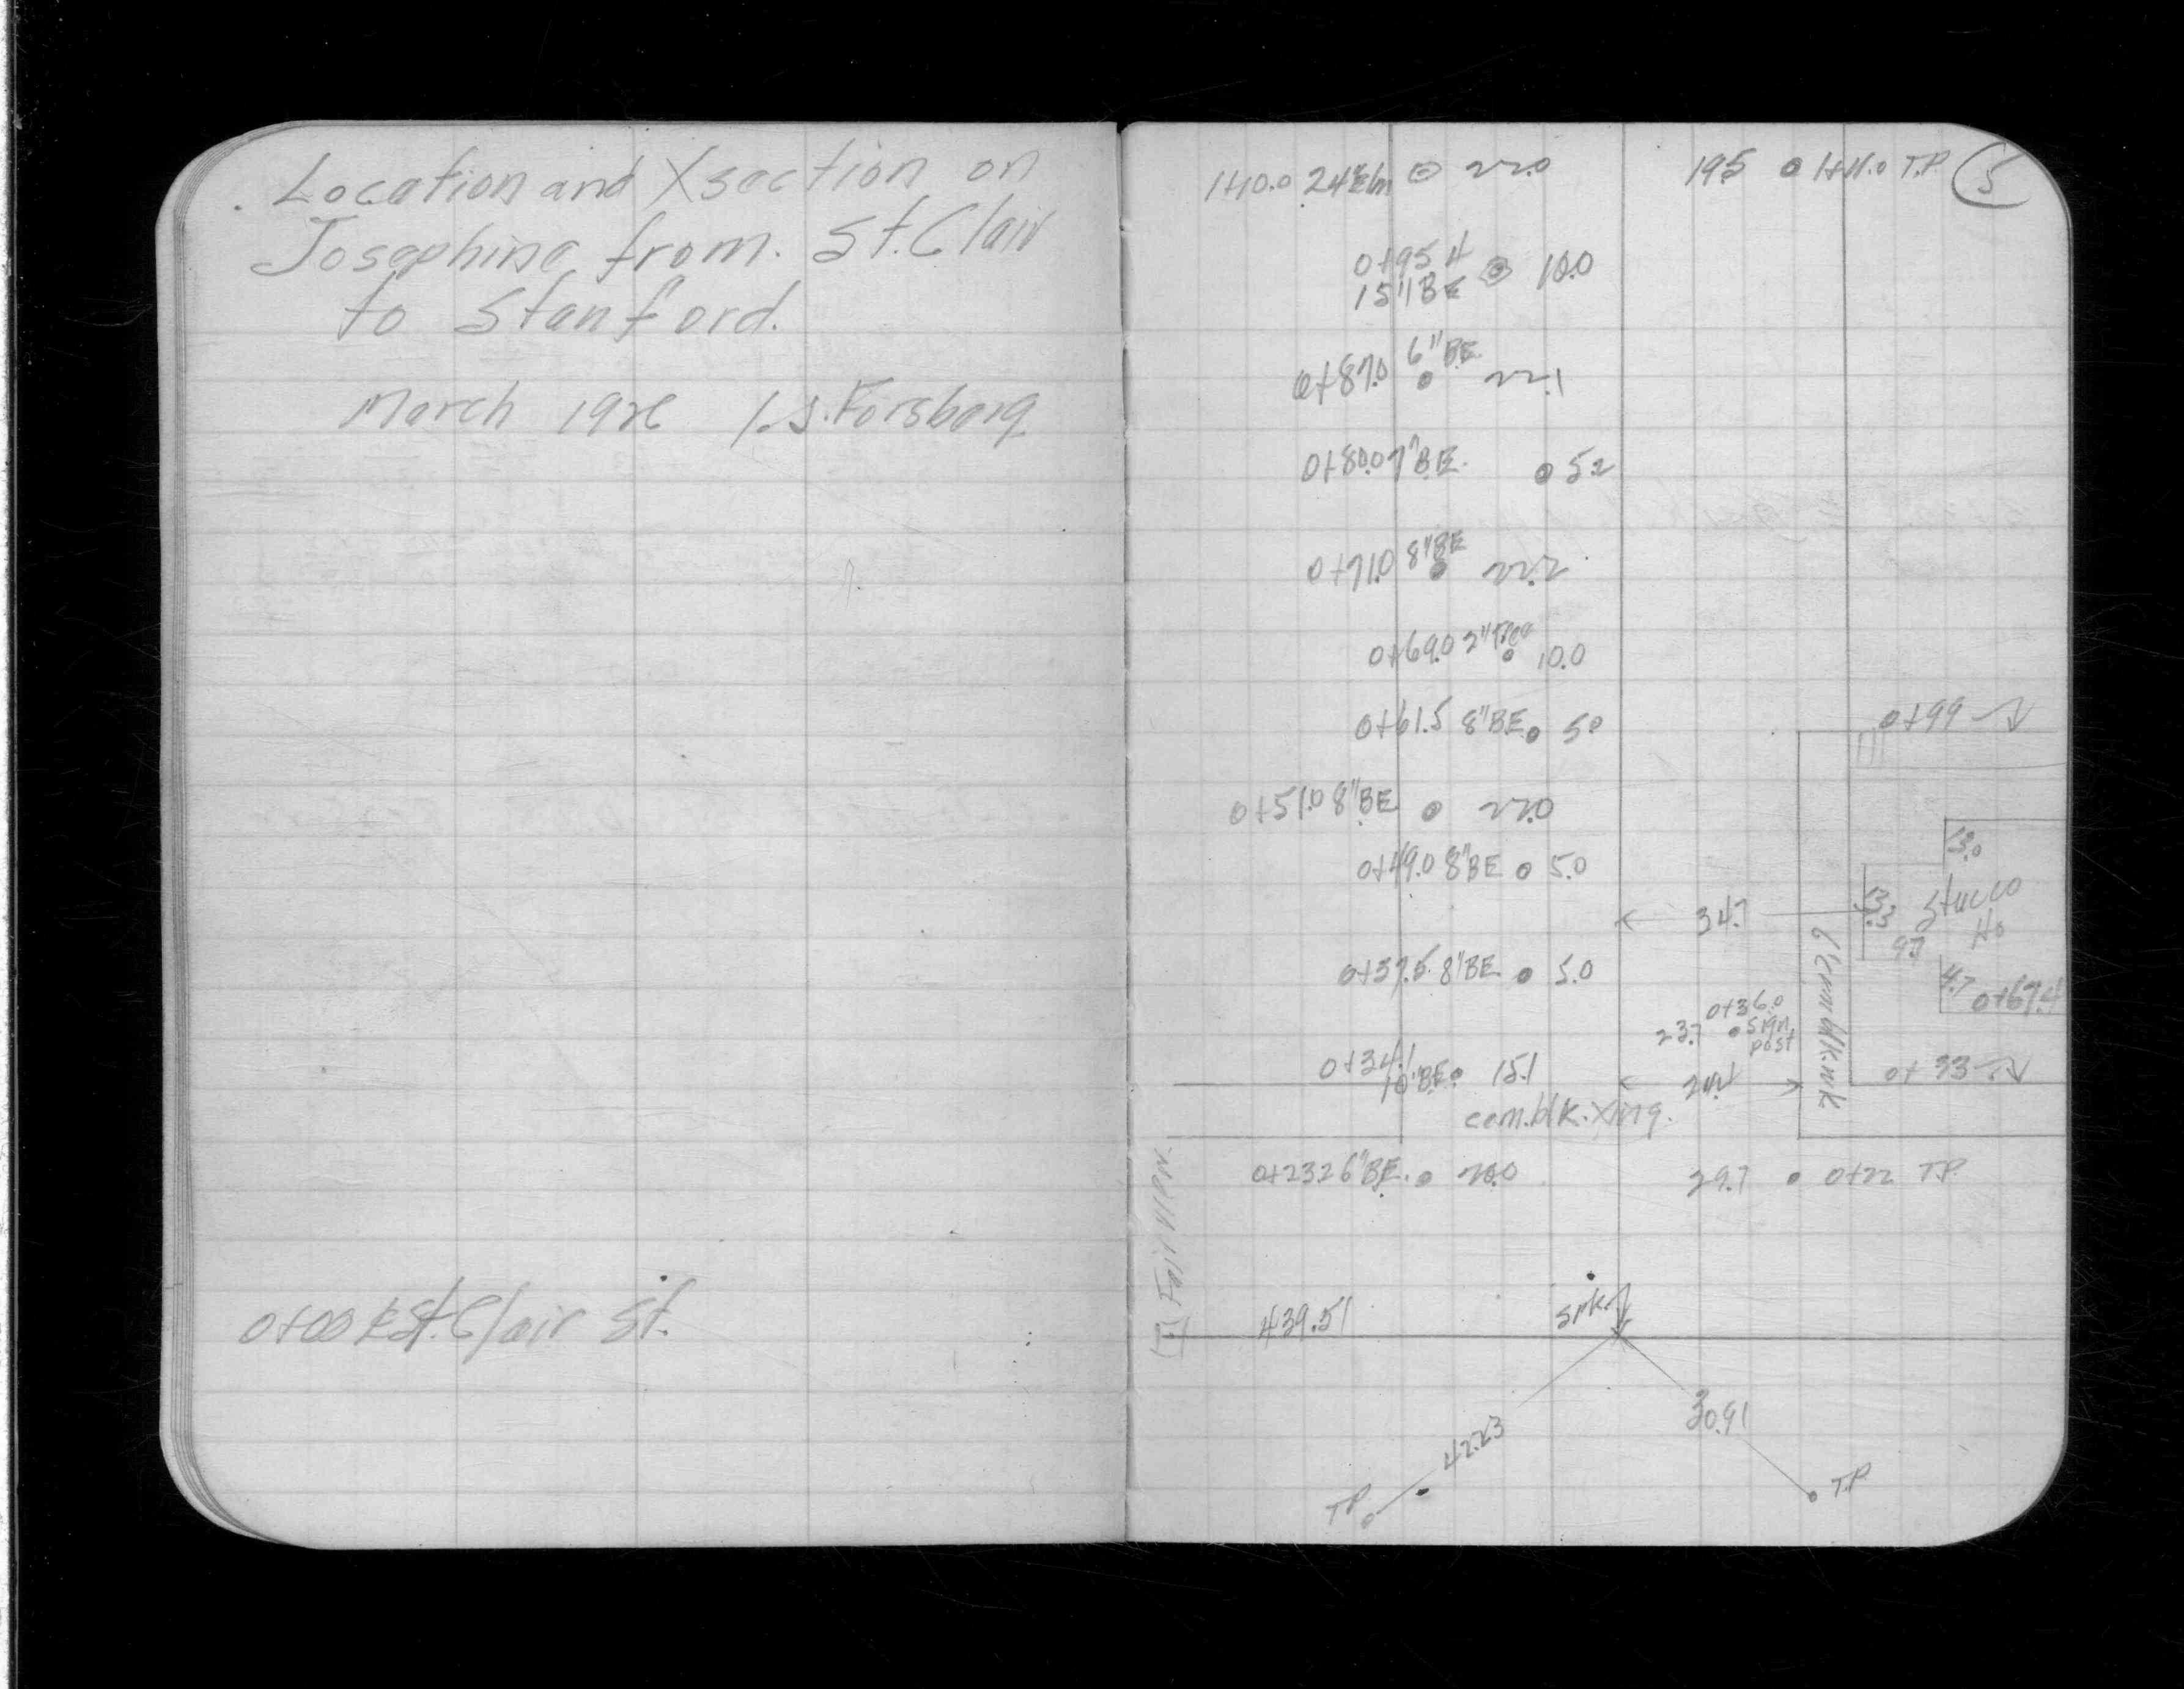 Location and Xsection on
Josephine from. St. Clair
to Stanford.
March 1926 I.S. Forsberg
0+00 St. Clair St.
5
1+10.0 24" Elm 22.0
19.5 1+11.0 T.P.
0+95.4
15" BE 10.0
0+87.0 6" BE. 22.1
0+80.0 7" B.E. 5.2
0+71.0 8" BE 22.2
0+69.0 2" Tree 10.0
0+61.5 8" BE. 5.0
0+99
0+51.0 8" BE 22.0
13.0
0+49.0 8" BE 5.0
34.7
13.3
Stucco
Ho
9.7
0+37.5 8" BE 5.0
4.7 0+67.4
0+36.0
23.7 sign
post
6' cem blk. wk
0+34.1
10" B.E. 15.1
0+33
cem. blk. Xing.
0+23.2 6" BE. 20.0
29.7 0+22 T.P.
Fairview
439.51
spk.
42.23
30.91
T.P.
T.P.